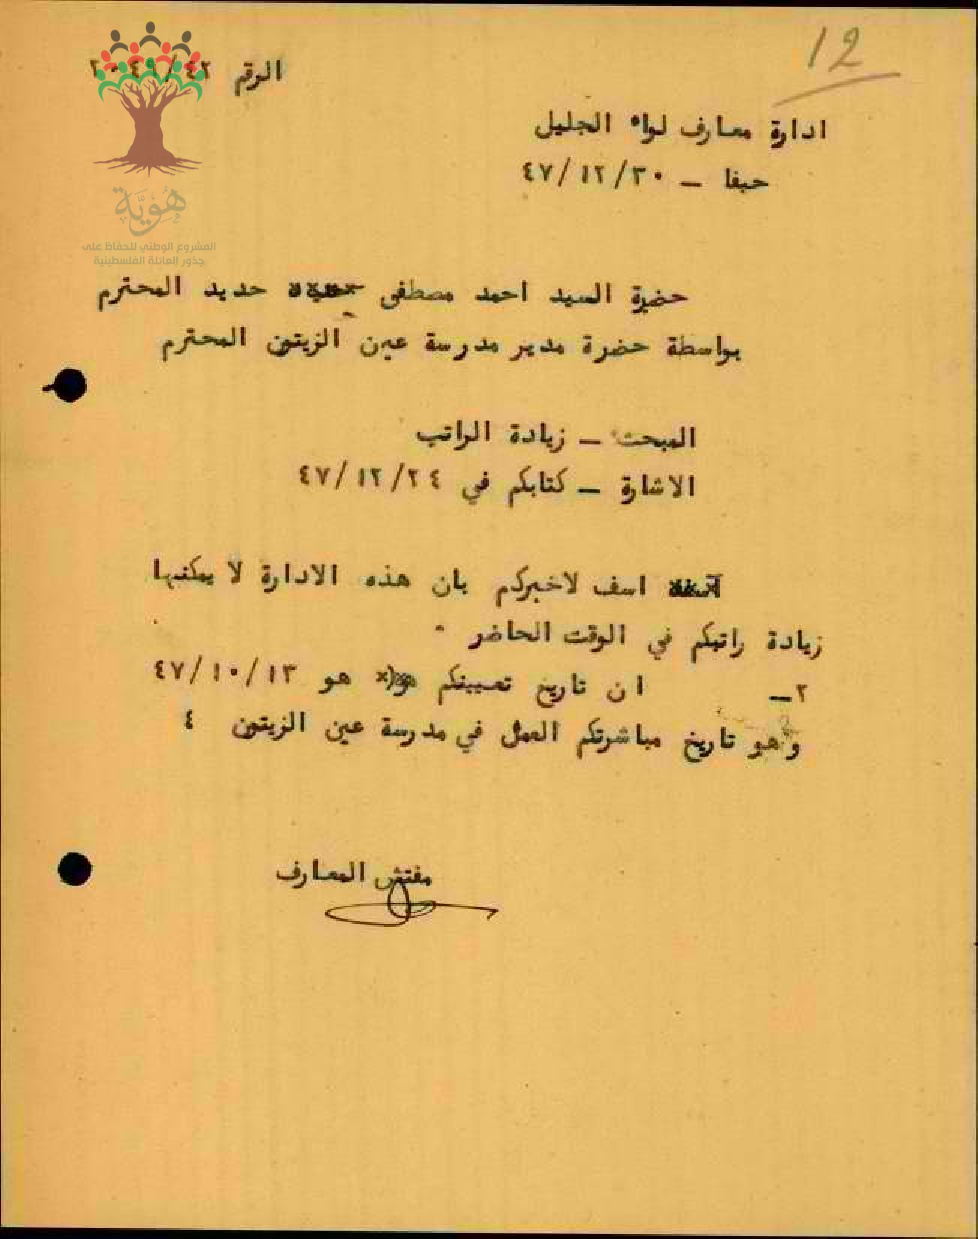 12
الرقم
ادارة معارف لواء الجليل
حيفا – ٤٧/١٢/٣٠
حضرة السيد احمد مصطفى حديد المحترم
بواسطة حضرة مدير مدرسة عين الزيتون المحترم
المبحث – زيادة الراتب
الاشارة – كتابكم في ٤٧/١٢/٢٤
اسف لاخبركم بان هذه الادارة لا يمكنها
زيادة راتبكم في الوقت الحاضر ٠
٢– ان تاريخ تعيينكم هو ٤٧/١٠/١٣
وهو تاريخ مباشرتكم العمل في مدرسة عين الزيتون ٤
مفتش المعارف
هُوِيَّة
المشروع الوطني للحفاظ على
جذور العائلة الفلسطينية